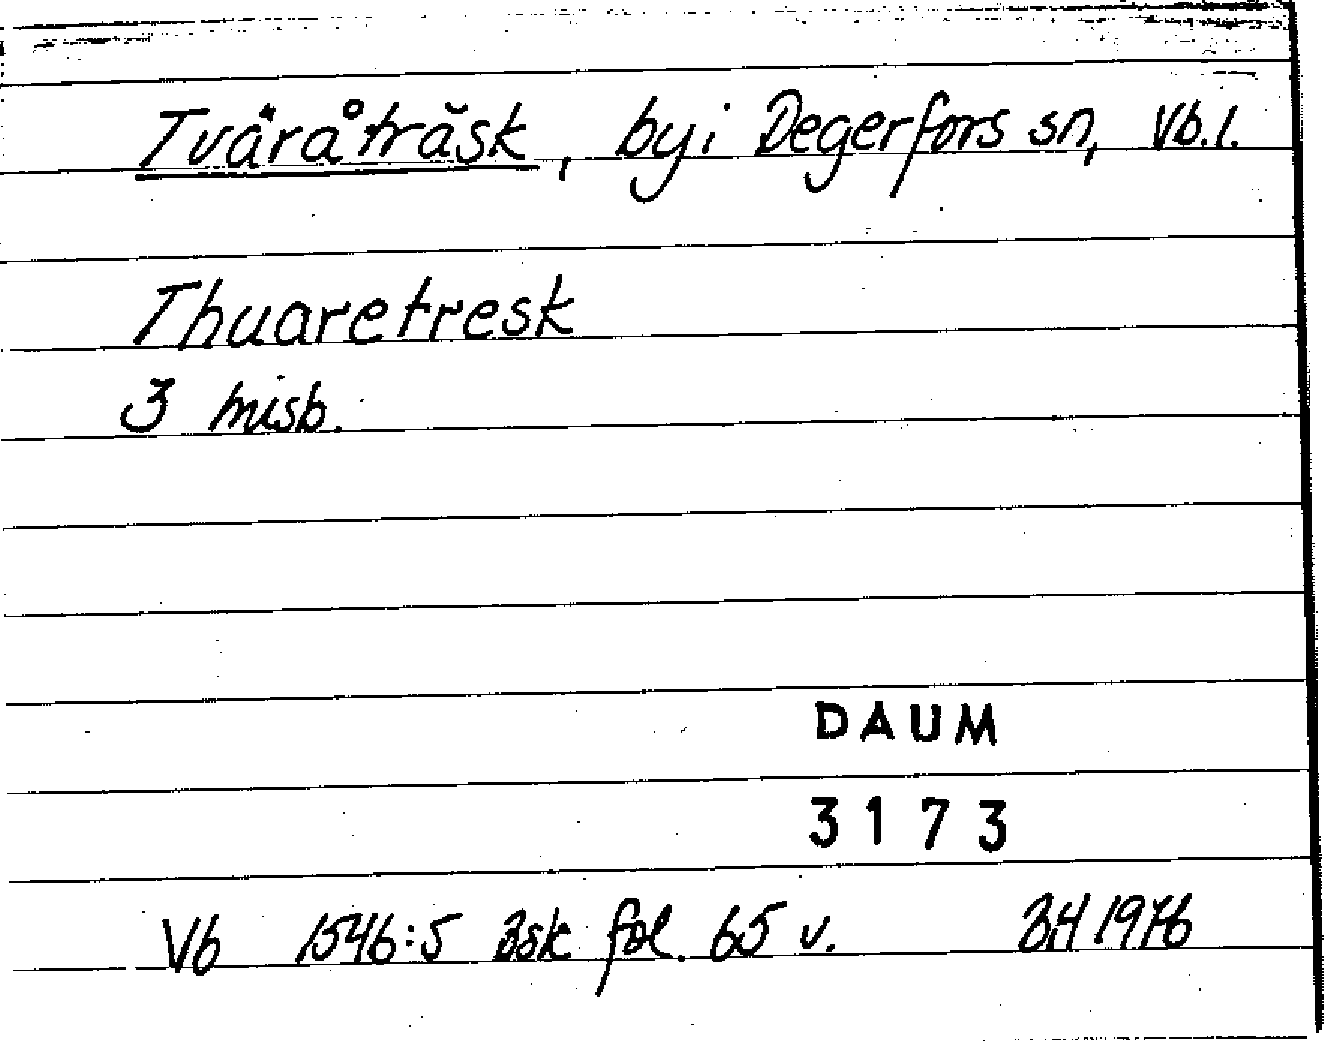 Tväråträsk, by i Degerfors sn, Vb. l.
Thuaretresk
3 misb.
DAUM
3173
Vb 1546:5 Bsk fol. 65 v. BH 1976